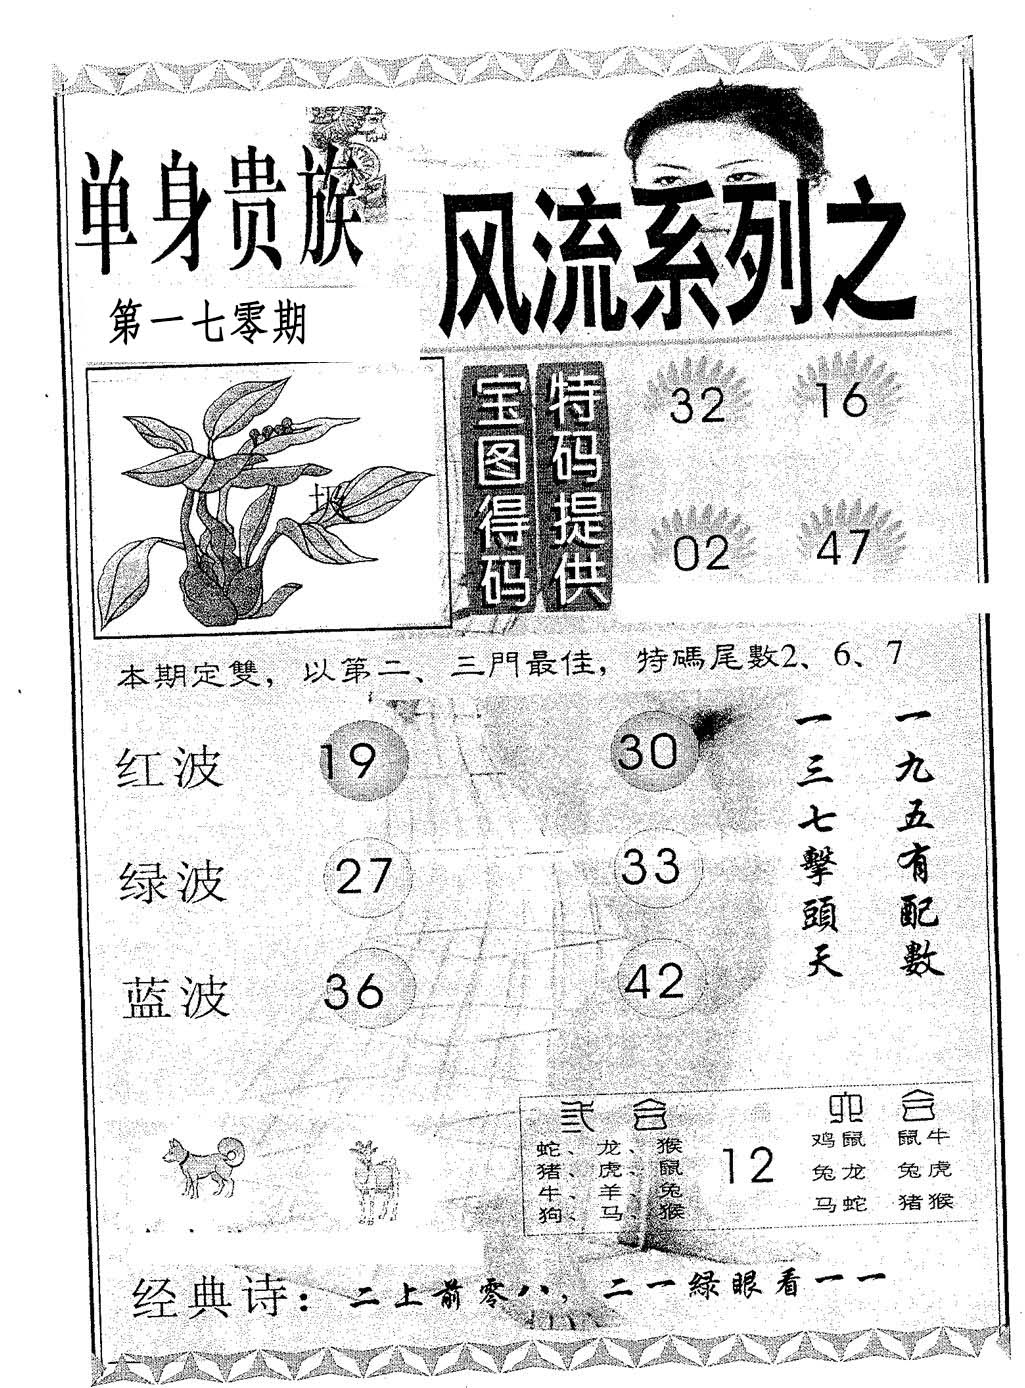 单身贵族
风流系列之
第一七零期
特码提供
宝图得码
32 16
02 47
本期定雙，以第二、三門最佳，特碼尾數2、6、7
红波 19 30
绿波 27 33
蓝波 36 42
一九五有配數
一三七擊頭天
合
蛇、龙、猴
猪、虎、鼠
牛、羊、兔
狗、马、猴
12
六合
鸡鼠 鼠牛
兔龙 兔虎
马蛇 猪猴
经典诗：二上前零八，二一緑眼看一一